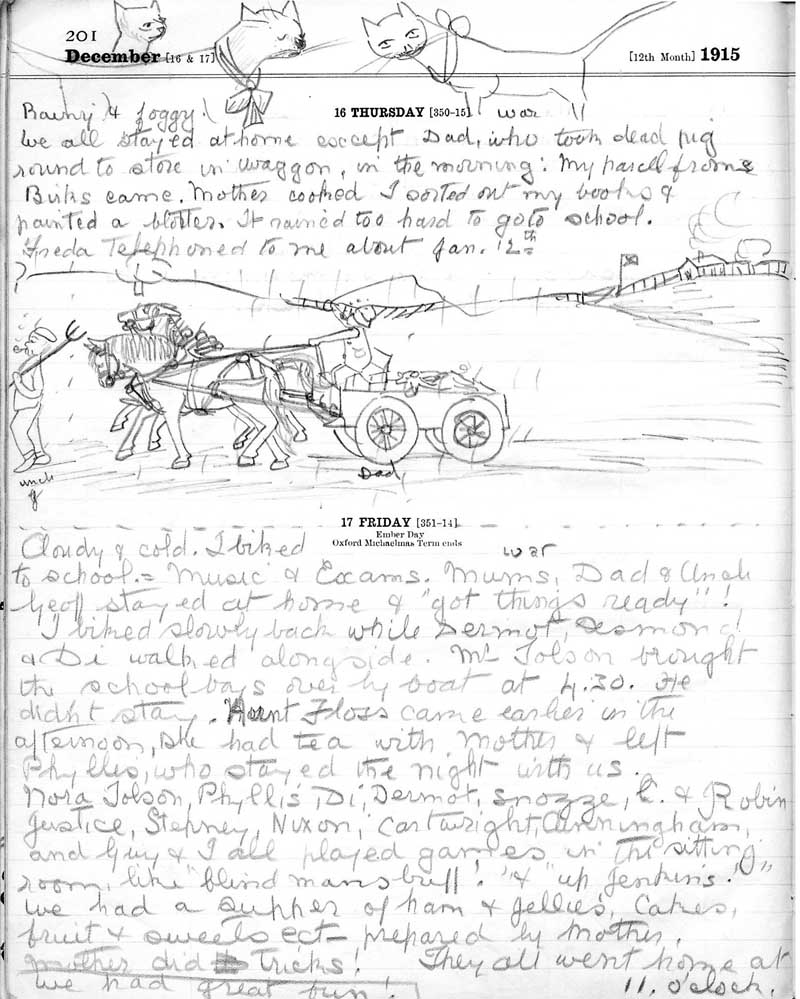 201
December [16 & 17] [12th Month] 1915
Rainy & foggy. 16 THURSDAY [350-15] war
We all stayed at home except Dad, who took dead pig
round to store in waggon, in the morning. My parcel from
Birks came. Mother cooked I sorted out my books &
painted a blotter. It rained too hard to go to school.
Freda Telephoned to me about Jan. 12th
Dad
uncle
g
17 FRIDAY [351-14]
Ember Day
Oxford Michaelmas Term ends
Cloudy & cold. I biked war
to school = Music & Exams. Mums, Dad & Uncle
Geoff stayed at home & "got things ready"!
I biked slowly back while Dermot, Desmond
& Di walked alongside. Mr Tolson brought
the schoolboys over by boat at 4.30. He
didn't stay. Aunt Floss came earlier in the
afternoon, she had tea with Mother & left
Phyllis, who stayed the night with us.
Nora Tolson, Phyllis, Di, Dermot, Snozze, C. & Robin
Justice, Stepney, Nixon, Cartwright, Cunningham,
and Guy & I all played games in the sitting
room, like "blind mans buff"! & "up Jenkins!"
We had a supper of ham & jellies, cakes,
fruit & sweets ect - prepared by Mother,
Mother did tricks! They all went home at
We had great fun! 11. o'clock.